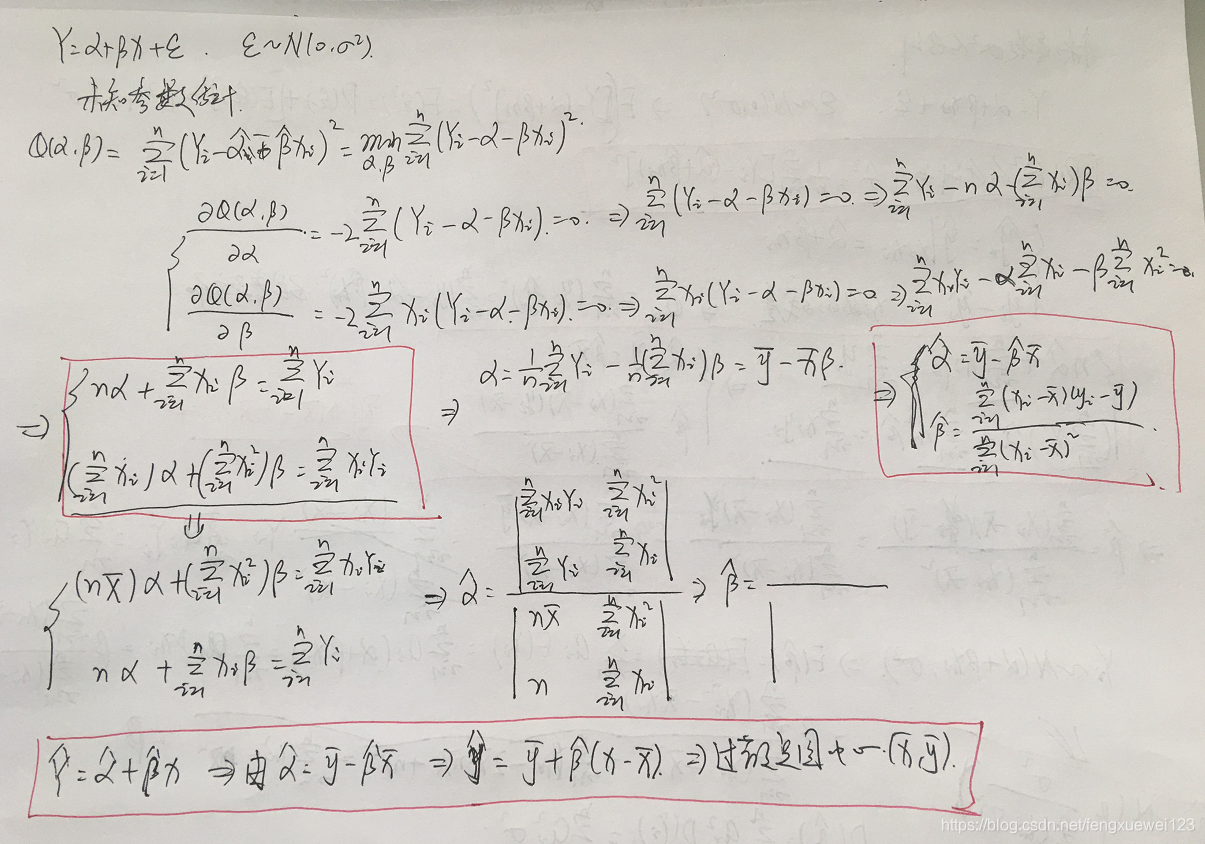 Y=α+βX+ε. ε~N(0,σ²).
未知参数估计.
Q(α,β)= Σ_{i=1}^{n}(Yi-α̂-β̂Xi)² = min_{α,β} Σ_{i=1}^{n}(Yi-α-βXi)².
∂Q(α,β)/∂α = -2Σ_{i=1}^{n}(Yi-α-βXi)=0. ⇒ Σ_{i=1}^{n}(Yi-α-βXi)=0. ⇒ Σ_{i=1}^{n}Yi-nα-(Σ_{i=1}^{n}Xi)β=0.
∂Q(α,β)/∂β = -2Σ_{i=1}^{n}Xi(Yi-α-βXi)=0. ⇒ Σ_{i=1}^{n}Xi(Yi-α-βXi)=0 ⇒ Σ_{i=1}^{n}XiYi-αΣ_{i=1}^{n}Xi-βΣ_{i=1}^{n}Xi²=0.
⇒ { nα+Σ_{i=1}^{n}Xiβ=Σ_{i=1}^{n}Yi
(Σ_{i=1}^{n}Xi)α+(Σ_{i=1}^{n}Xi²)β=Σ_{i=1}^{n}XiYi
⇒ α=1/n Σ_{i=1}^{n}Yi-1/n(Σ_{i=1}^{n}Xi)β=ȳ-x̄β.
⇒ { α̂=ȳ-β̂x̄
β̂=Σ_{i=1}^{n}(xi-x̄)(yi-ȳ) / Σ_{i=1}^{n}(xi-x̄)².
⇓
{ (nx̄)α+(Σ_{i=1}^{n}Xi²)β=Σ_{i=1}^{n}XiYi
nα+Σ_{i=1}^{n}Xiβ=Σ_{i=1}^{n}Yi
⇒ α̂= |Σ_{i=1}^{n}XiYi Σ_{i=1}^{n}Xi²; Σ_{i=1}^{n}Yi Σ_{i=1}^{n}Xi| / |nx̄ Σ_{i=1}^{n}Xi²; n Σ_{i=1}^{n}Xi| ⇒ β̂=
Ŷ=α̂+β̂x ⇒ 由α̂=ȳ-β̂x̄ ⇒ ŷ=ȳ+β̂(x-x̄). ⇒ 过散点图中心(x̄,ȳ).
https://blog.csdn.net/fengxuewei123